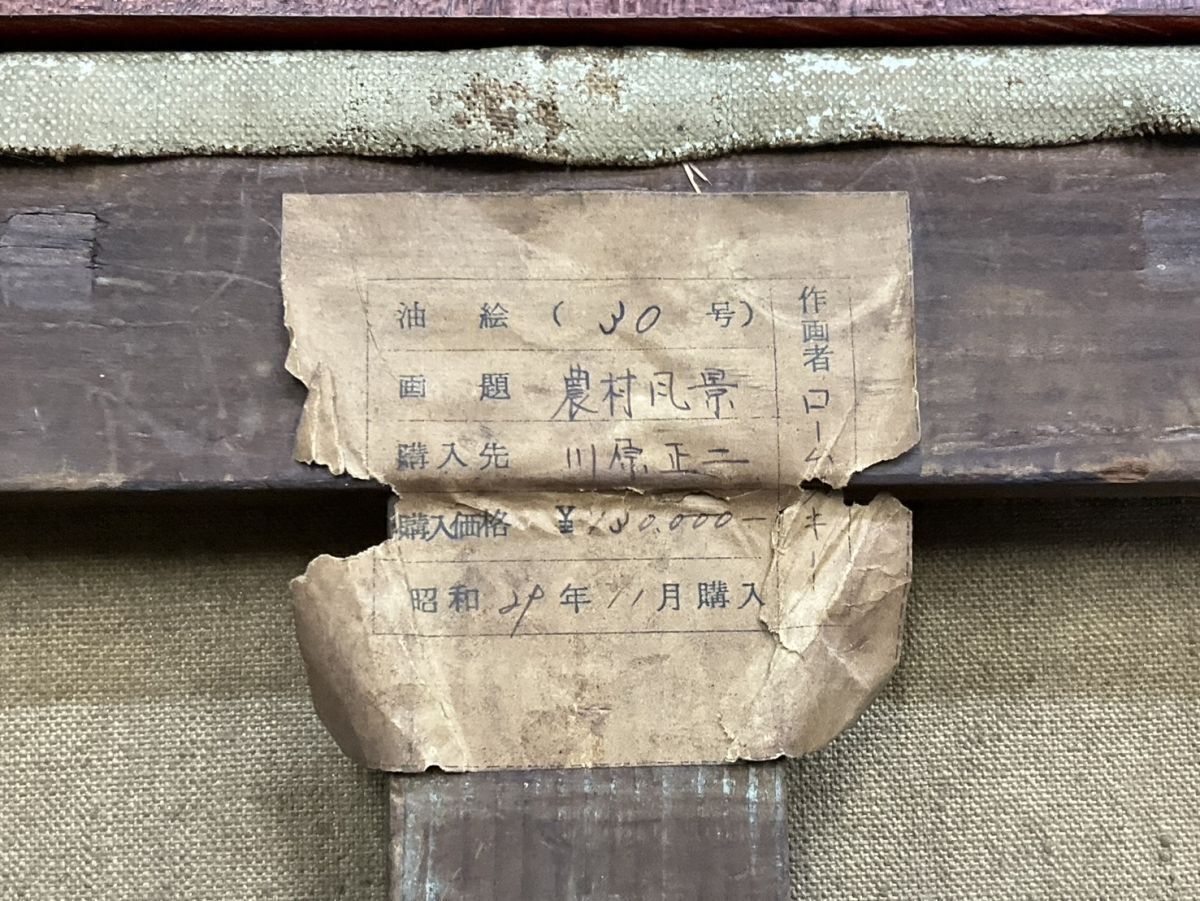 油絵(30号)
画題 農村風景
購入先 川原正二
購入価格 ¥130,000-
昭和29年11月購入
作画者 ロームキー